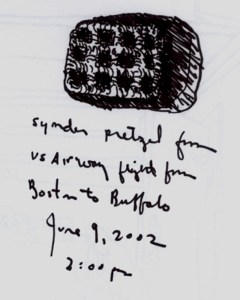 synder pretzel from
US Airway flight from
Boston to Buffalo
June 9, 2002
2:00 pm